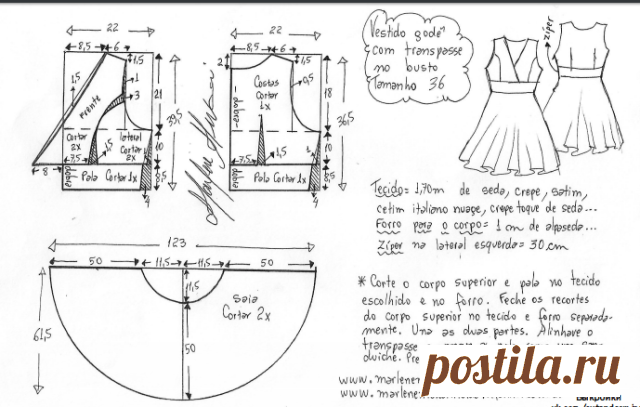 22
8,5
6
1,5
1
3
1,5
Frente
21
39,5
Cortar
2x
lateral
Cortar
2x
7,5
1,5
10
8
dobra
Pala Cortar 1x
4
22
8,5
6
2
1,5
Costas
Cortar
1x
0,5
dobra
18
36,5
7,5
1,5
1
10
dobra
Pala Cortar 1x
4
Vestido godê
com transpasse
no busto
Tamanho 36
zíper
Tecido= 1,70m de seda, crepe, satim,
cetim italiano nuage, crepe toque de seda...
Forro para o corpo = 1 cm de alpseda...
Zíper na lateral esquerda = 30 cm
123
50
11,5
11,5
50
11,5
Saia
Cortar 2x
61,5
50
* Corte o corpo superior e pala no tecido
escolhido e no forro. Feche os recortes
do corpo superior no tecido e forro separada-
mente. Una as duas partes. Alinhave o
transpasse
duiche. Pre
www.marlene
www.marlene
postila.ru